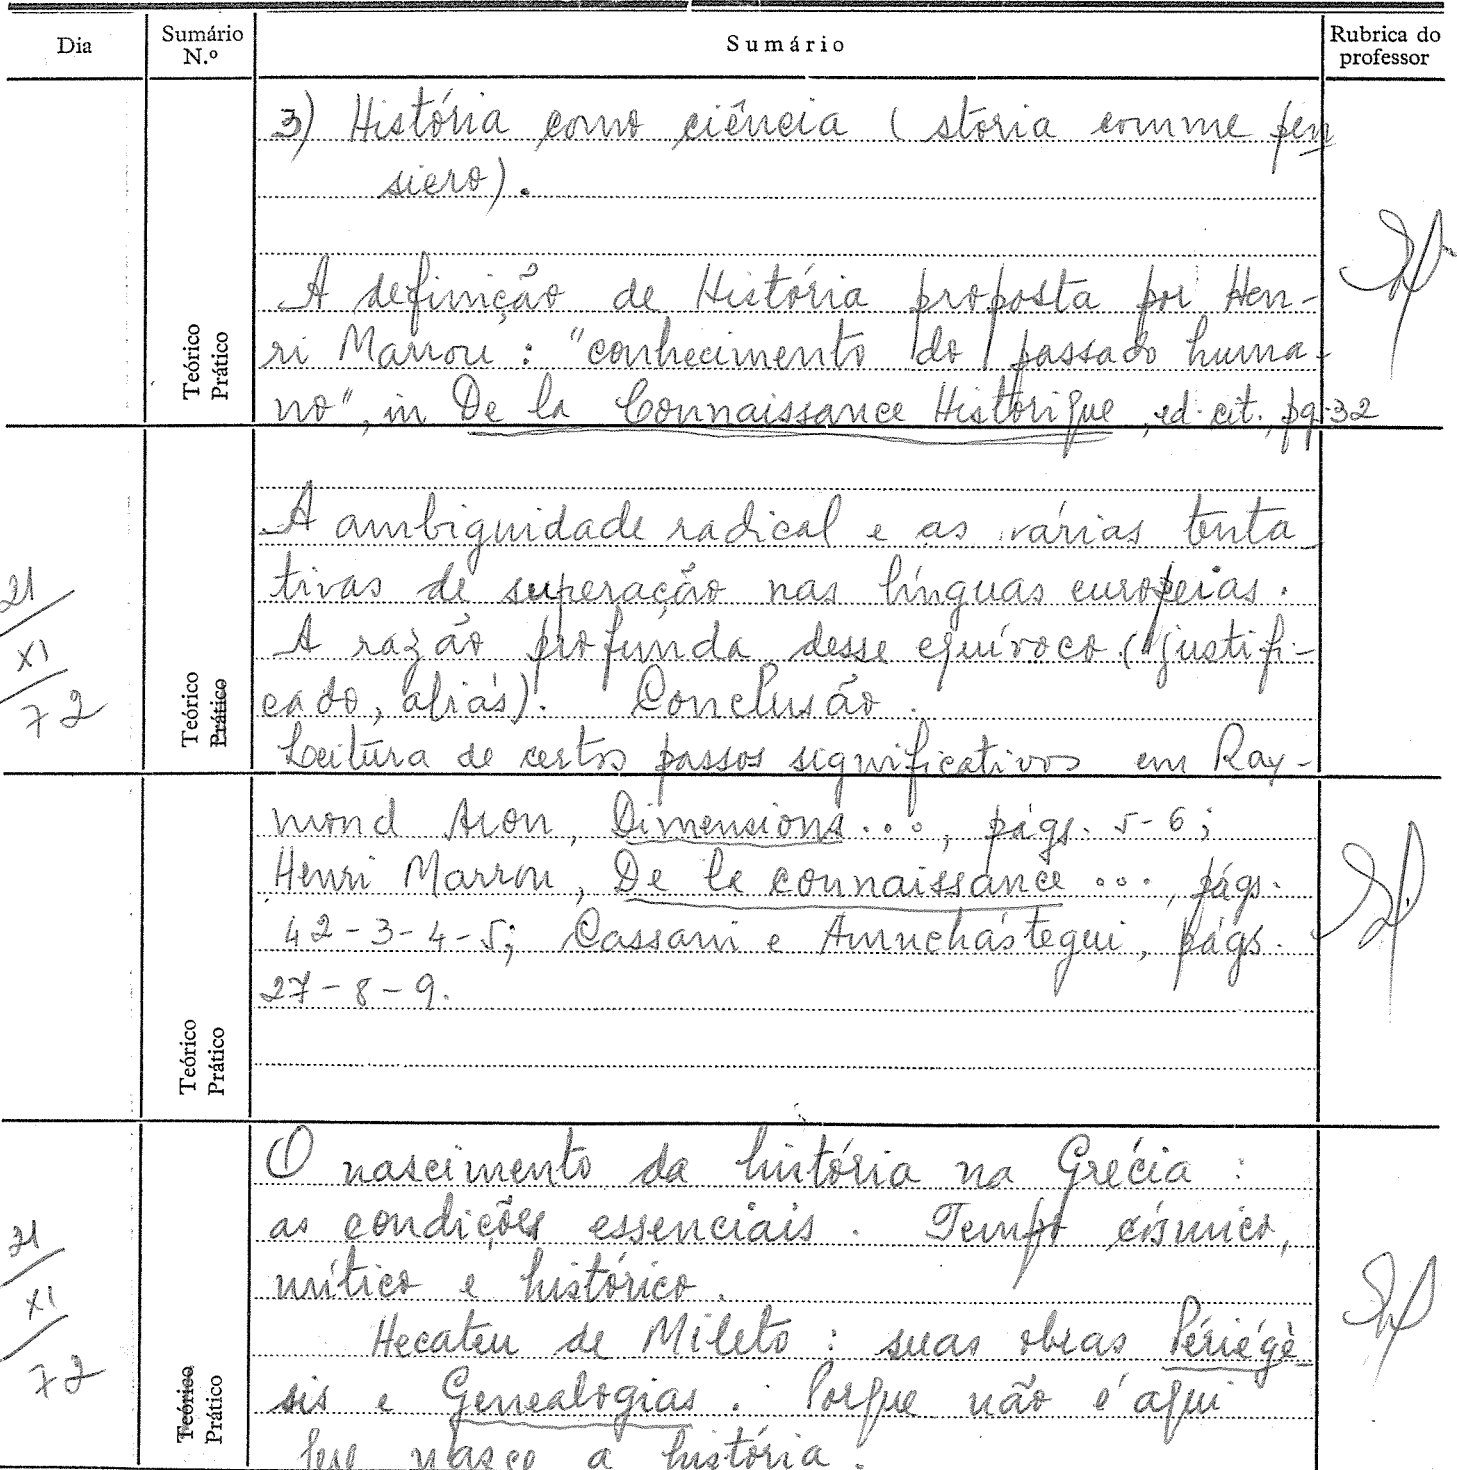 Dia
Sumário N.º
Sumário
Rubrica do professor
3) História como ciência (storia comme pen
siero).
A definição de História proposta por Hen-
ri Marrou : "conhecimento do passado huma-
no", in De la Connaissance Historique, ed. cit., pg. 32
Teórico
Prático
21
XI
72
A ambiguidade radical e as várias tenta
tivas de superação nas línguas europeias.
A razão profunda desse equívoco (justifi-
cado, aliás). Conclusão.
Leitura de certos passos significativos em Ray-
Teórico
Prático
mond Aron, Dimensions..., págs. 5-6;
Henri Marrou, De la connaissance ..., págs.
42-3-4-5; Cassani e Amuchástegui, págs.
27-8-9.
Teórico
Prático
21
XI
72
O nascimento da história na Grécia :
as condições essenciais. Tempo cósmico,
mítico e histórico.
Hecateu de Mileto : suas obras Périégè
sis e Genealogias. Porque não é aqui
que nasce a história.
Teórico
Prático